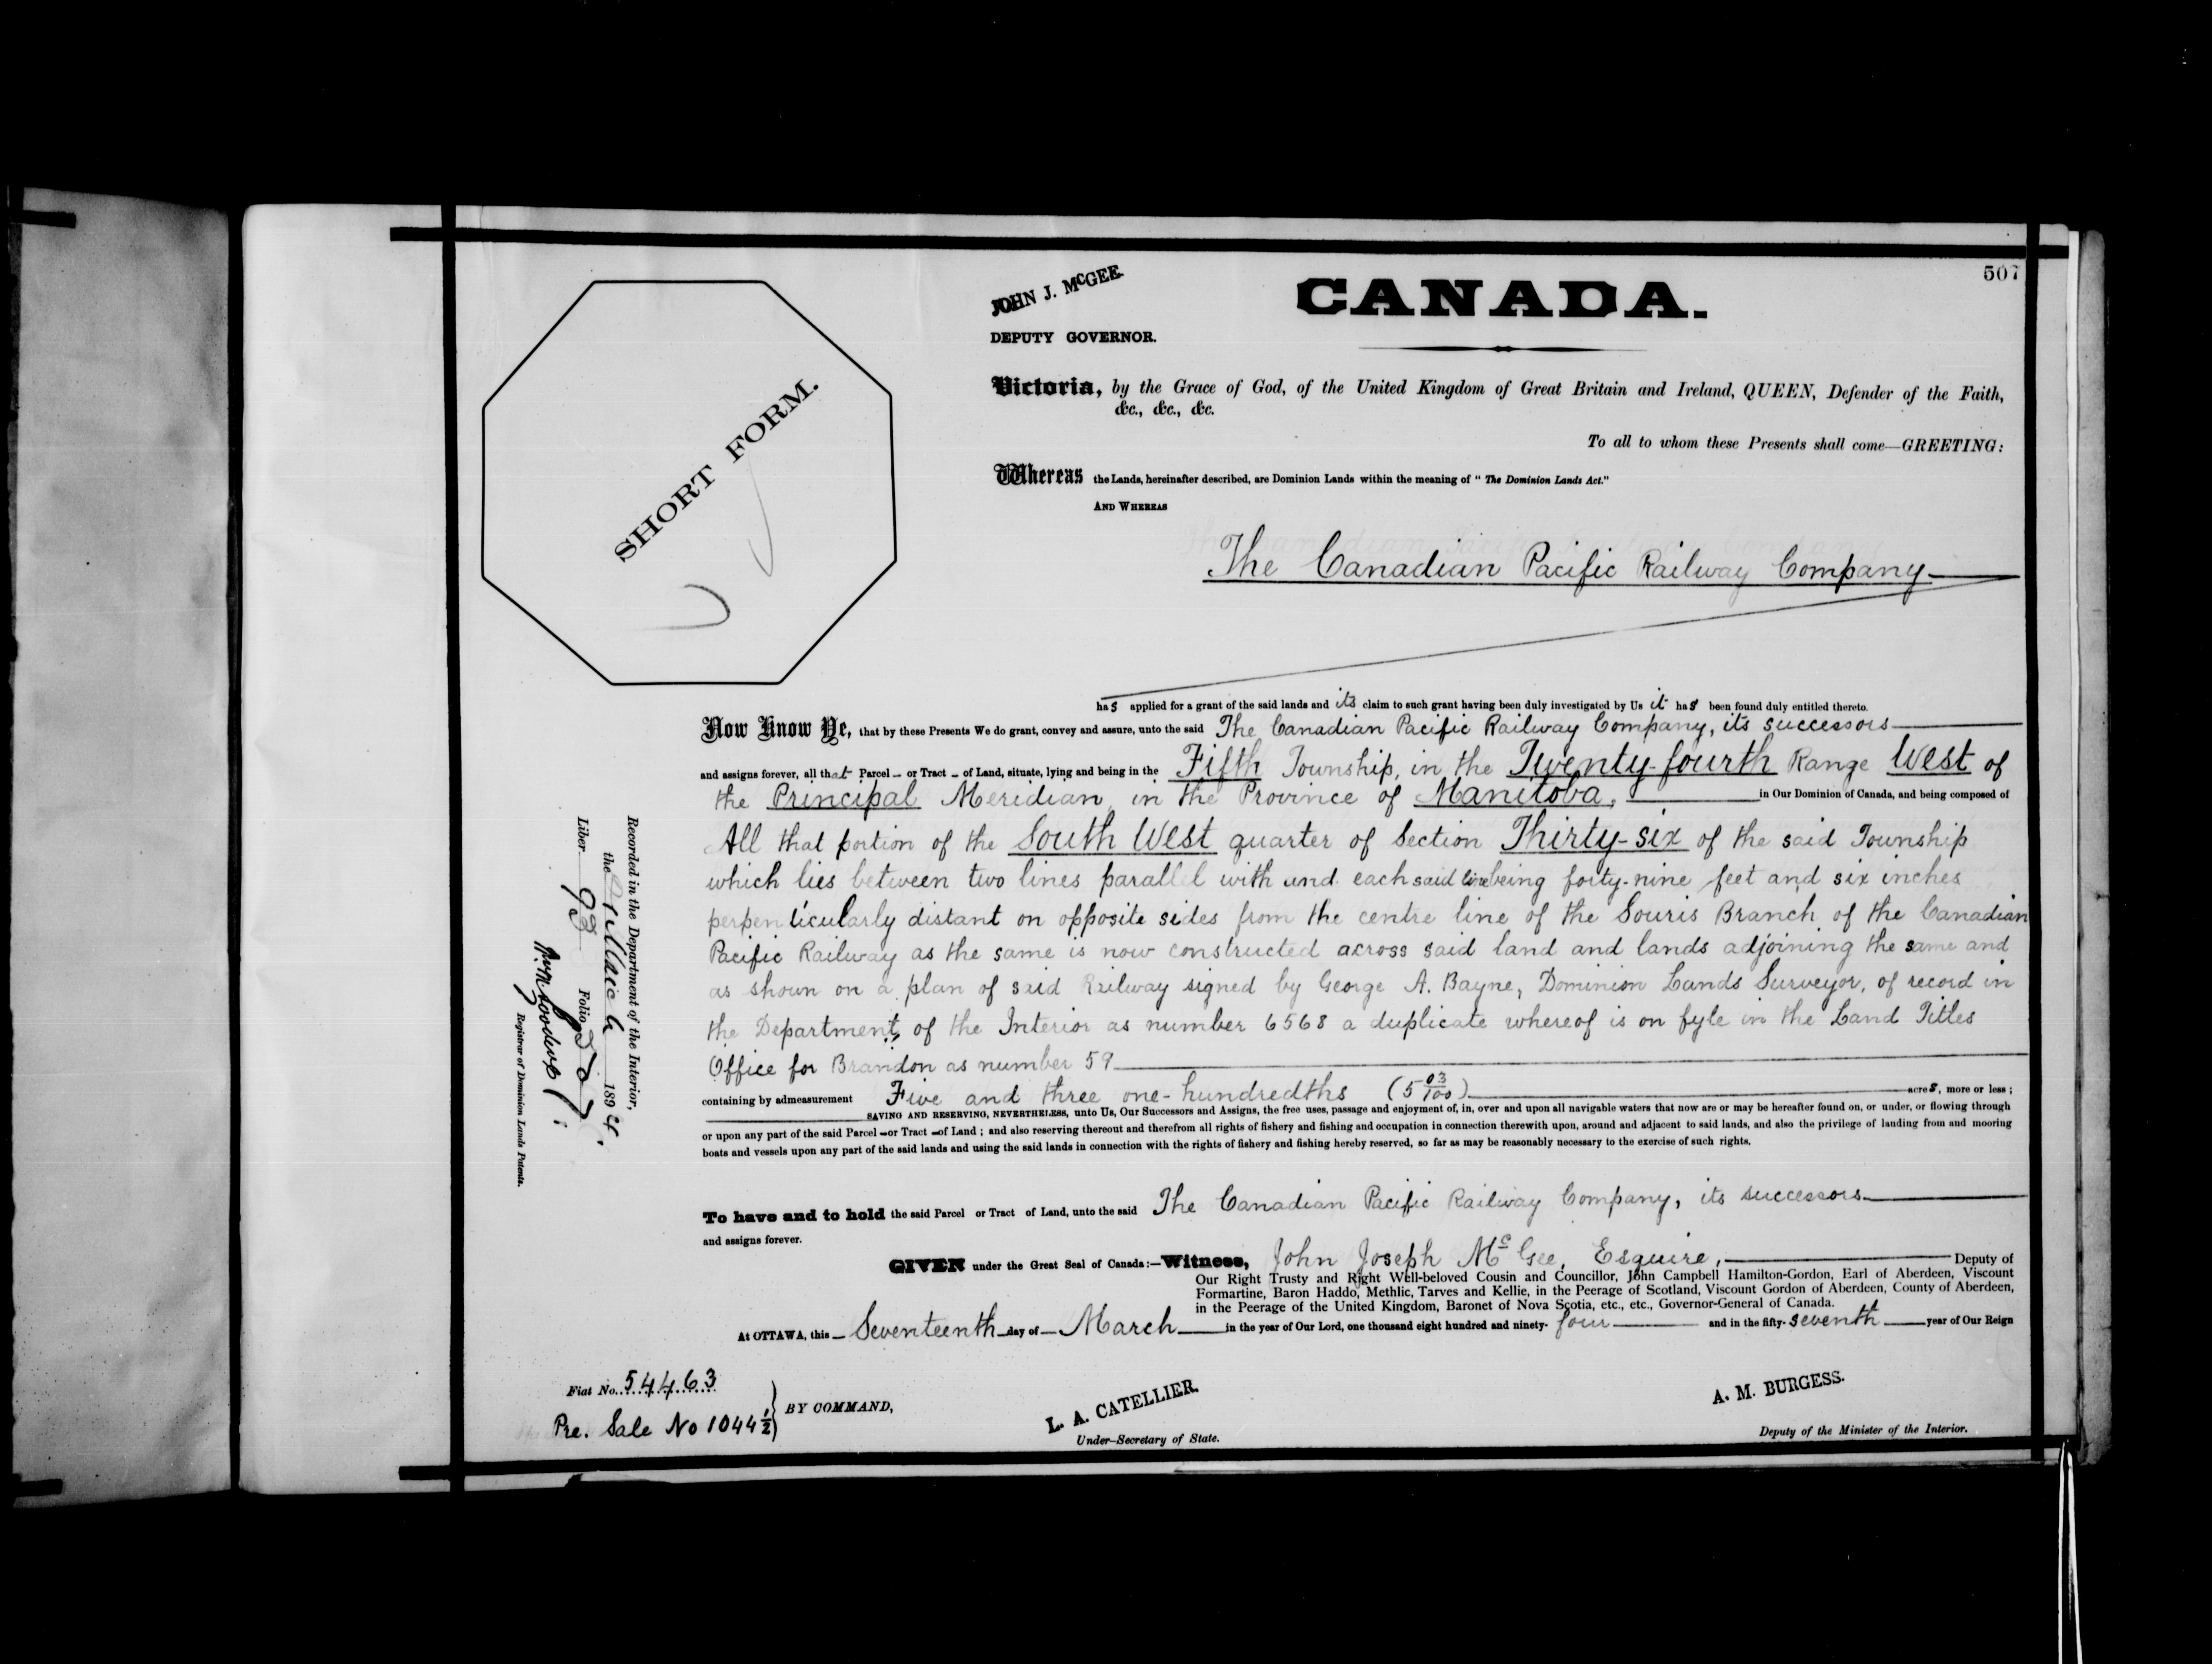 507
JOHN J. McGEE.
DEPUTY GOVERNOR.
CANADA.
SHORT FORM.
Victoria, by the Grace of God, of the United Kingdom of Great Britain and Ireland, QUEEN, Defender of the Faith,
&c., &c., &c.
To all to whom these Presents shall come—GREETING:
Whereas the Lands, hereinafter described, are Dominion Lands within the meaning of "The Dominion Lands Act."
AND WHEREAS
The Canadian Pacific Railway Company
has applied for a grant of the said lands and its claim to such grant having been duly investigated by Us it has been found duly entitled thereto.
Now Know Ye, that by these Presents We do grant, convey and assure, unto the said The Canadian Pacific Railway Company, its successors
and assigns forever, all that Parcel – or Tract – of Land, situate, lying and being in the Fifth Township, in the Twenty-fourth Range West of
the Principal Meridian, in the Province of Manitoba, in Our Dominion of Canada, and being composed of
All that portion of the South West quarter of Section Thirty-six of the said Township
which lies between two lines parallel with and each said line being forty-nine feet and six inches
perpendicularly distant on opposite sides from the centre line of the Souris Branch of the Canadian
Pacific Railway as the same is now constructed across said land and lands adjoining the same and
as shown on a plan of said Railway signed by George A. Bayne, Dominion Lands Surveyor, of record in
the Department of the Interior as number 6568 a duplicate whereof is on fyle in the Land Titles
Office for Brandon as number 59
containing by admeasurement Five and three one-hundredths (5 03/100) acres, more or less;
SAVING AND RESERVING, NEVERTHELESS, unto Us, Our Successors and Assigns, the free uses, passage and enjoyment of, in, over and upon all navigable waters that now are or may be hereafter found on, or under, or flowing through
or upon any part of the said Parcel – or Tract – of Land; and also reserving thereout and therefrom all rights of fishery and fishing and occupation in connection therewith upon, around and adjacent to said lands, and also the privilege of landing from and mooring
boats and vessels upon any part of the said lands and using the said lands in connection with the rights of fishery and fishing hereby reserved, so far as may be reasonably necessary to the exercise of such rights.
To have and to hold the said Parcel or Tract of Land, unto the said The Canadian Pacific Railway Company, its successors
and assigns forever.
GIVEN under the Great Seal of Canada:—Witness, John Joseph McGee, Esquire, Deputy of
Our Right Trusty and Right Well-beloved Cousin and Councillor, John Campbell Hamilton-Gordon, Earl of Aberdeen, Viscount
Formartine, Baron Haddo, Methlic, Tarves and Kellie, in the Peerage of Scotland, Viscount Gordon of Aberdeen, County of Aberdeen,
in the Peerage of the United Kingdom, Baronet of Nova Scotia, etc., etc., Governor-General of Canada.
At OTTAWA, this Seventeenth day of March in the year of Our Lord, one thousand eight hundred and ninety-four and in the fifty-seventh year of Our Reign
Fiat No. 54463
Pre. Sale No 1044 1/2
BY COMMAND,
L. A. CATELLIER.
Under-Secretary of State.
A. M. BURGESS.
Deputy of the Minister of the Interior.
Recorded in the Department of the Interior,
the March 1894.
Liber 93 Folio 507
Registrar of Dominion Lands Patents.